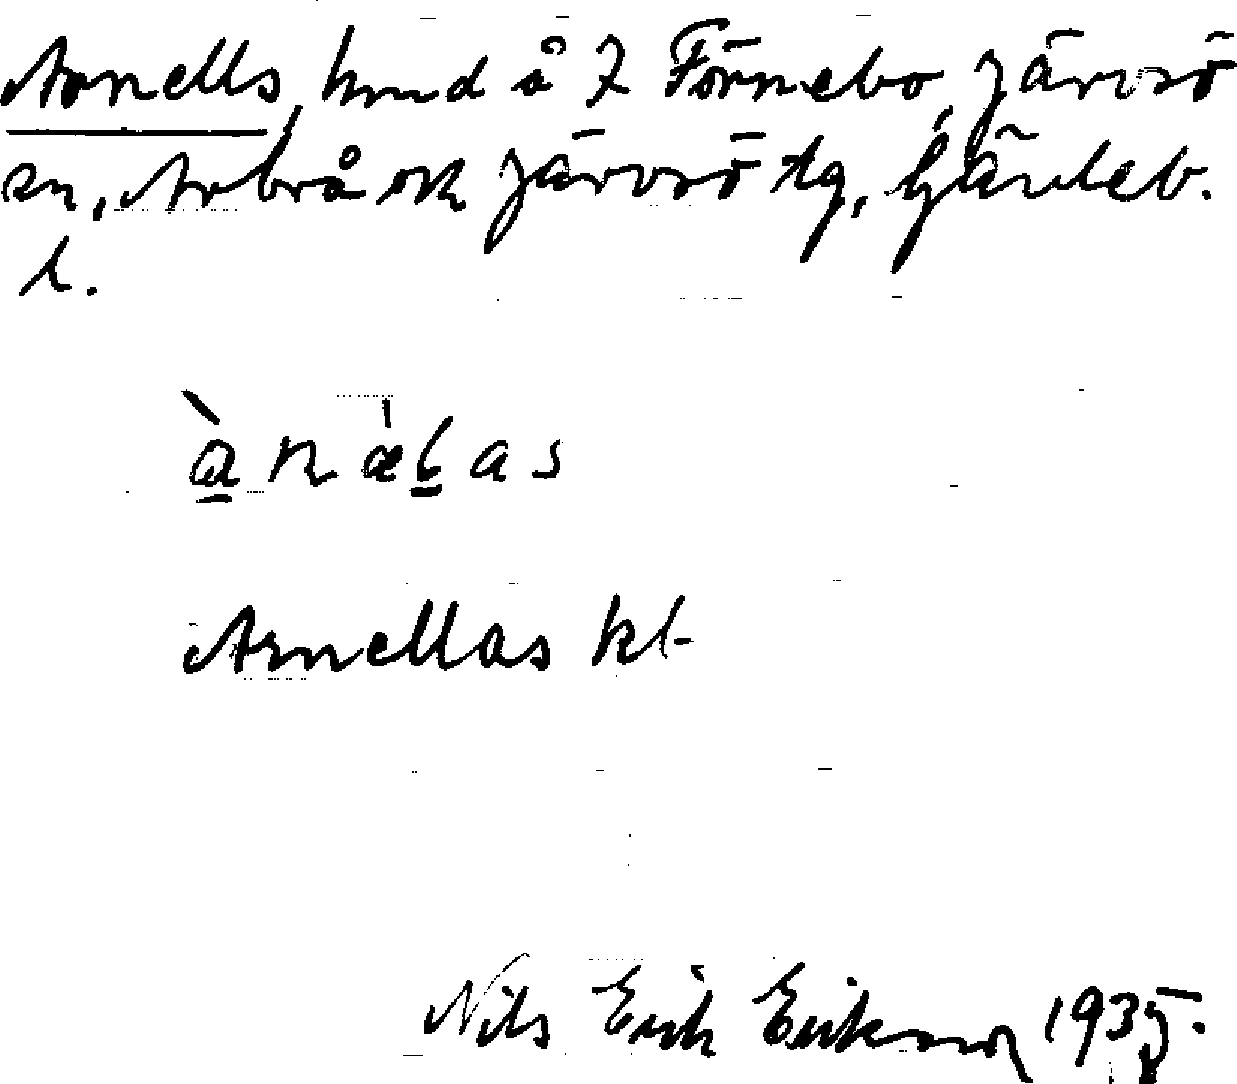 Arnells, hmd å 7 Förnebo, Järvsö
sn, Arbrå ok Järvsö tg, Gävleb.
l.
ànæ̀ḻas
Arnellas kl
Nils Erik Eriksson 1935.